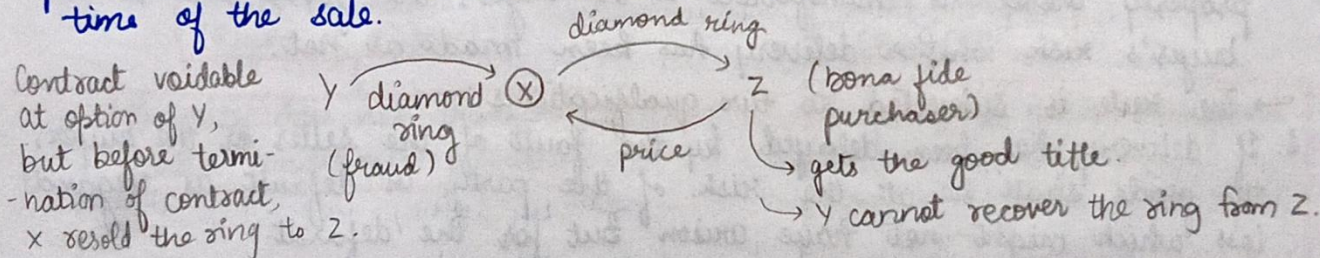 time of the sale.
diamond ring
Contract voidable
at option of Y,
but before termi-
-nation of contract,
x resold the ring to Z.
Y diamond X
ring
(fraud)
price
Z (bona fide
purchaser)
gets the good title.
Y cannot recover the ring from Z.